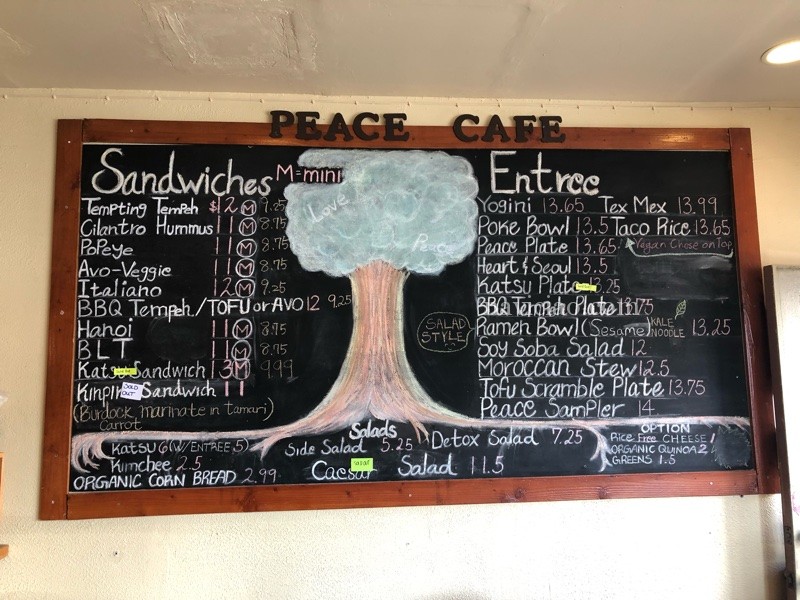 PEACE CAFE
Sandwiches M=mini
Tempting Tempeh $12 M 9.25
Cilantro Hummus 11 M 8.75
Popeye 11 M 8.75
Avo-Veggie 11 M 8.75
Italiano 12 M 9.25
BBQ Tempeh/TOFU or AVO 12 9.25
Hanoi 11 M 8.75
BLT 11 M 8.75
Sandwich 13 M 9.99
Sandwich 11
SOLD OUT
(Burdock, marinate in tamari)
Carrot
Love
Peace
Entree
Yogini 13.65 Tex Mex 13.99
Poke Bowl 13.5 Taco Rice 13.65
Peace Plate 13.65 Vegan Chese on Top
Heart & Seoul 13.5
Katsu Plate
BBQ Tempeh Plate
SALAD STYLE
Ramen Bowl (Sesame) KALE NOODLE 13.25
Soy Soba Salad 12
Moroccan Stew 12.5
Tofu Scramble Plate 13.75
Peace Sampler 14
Katsu 6 (W/ENTREE 5)
Kimchee 2.5
ORGANIC CORN BREAD 2.99
Salads
Side Salad 5.25 Detox Salad 7.25
Caesar Salad 11.5
OPTION
Rice Free CHEESE 1
ORGANIC QUINOA 2
GREENS 1.5